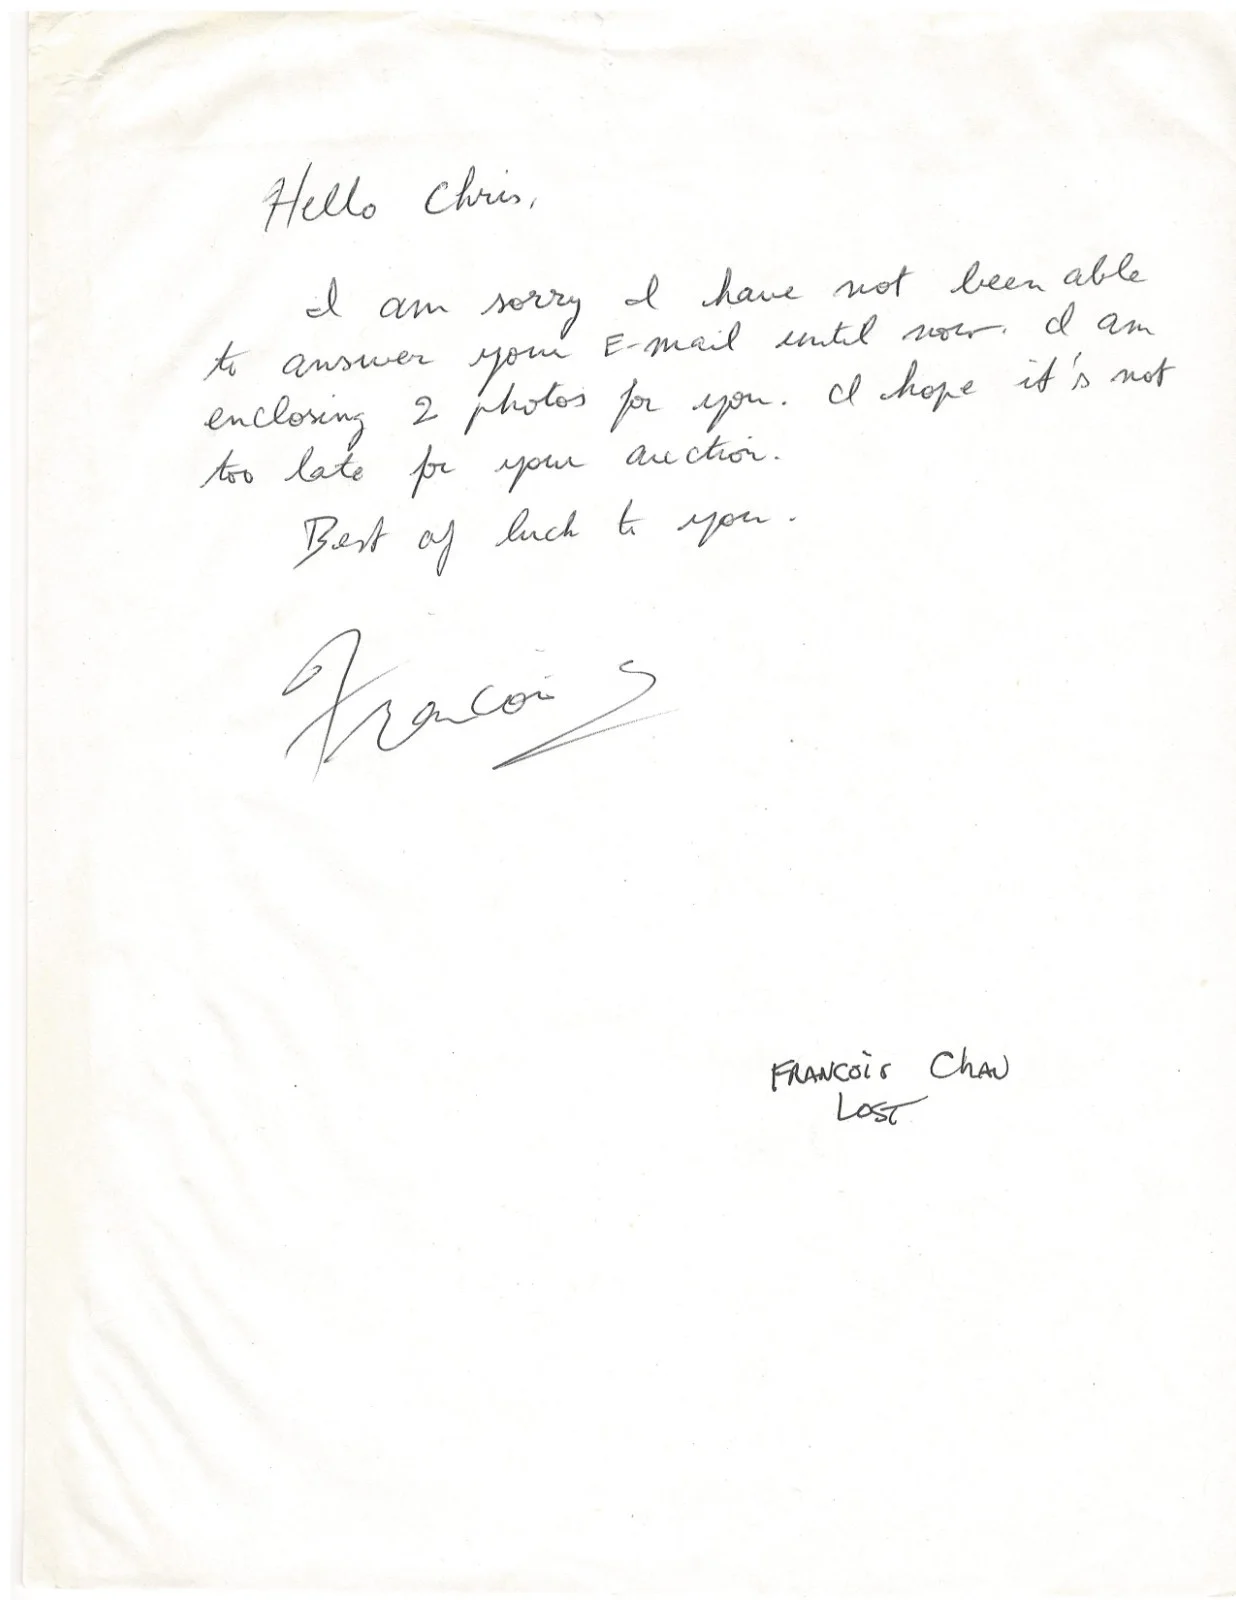 Hello Chris,
I am sorry I have not been able
to answer your E-mail until now. I am
enclosing 2 photos for you. I hope it's not
too late for your auction.
Best of luck to you.
Francois
FRANCOIS CHAU
LOST